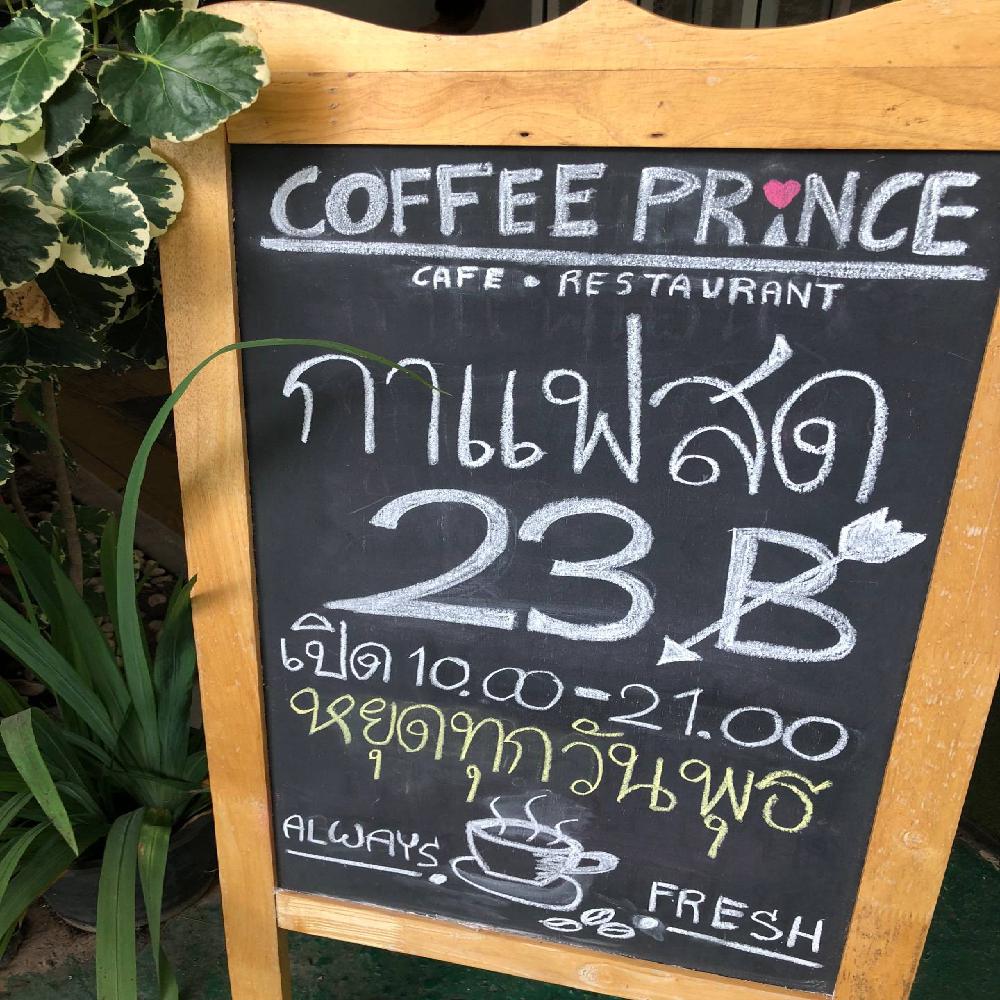 COFFEE PRINCE
CAFE • RESTAURANT
กาแฟสด
23 B
เปิด 10.00-21.00
หยุดทุกวันพุธ
ALWAYS
FRESH